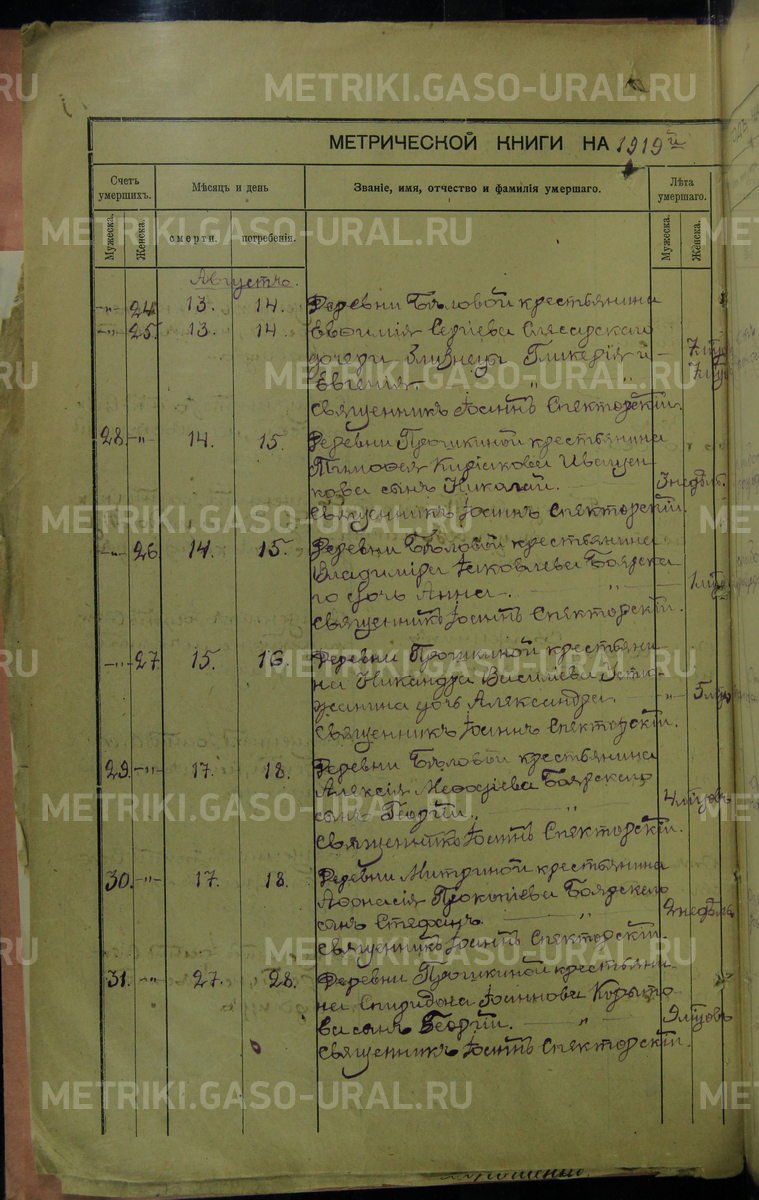 METRIKI.GASO-URAL.RU
МЕТРИЧЕСКОЙ КНИГИ НА 1919й
Счетъ умершихъ.
Мѣсяцъ и день
Званіе, имя, отчество и фамилія умершаго.
Лѣта умершаго.
Мужеска.
Женска.
смерти.
погребенія.
Мужеска.
Женска.
Августъ.
-"- 24 13. 14. Деревни Бѣловой крестьянина
-"- 25. 13. 14 Евфимія Сергіева Слесарскаго
дочери близнецы Гликерія и - 7
Евгенія. " " 7
Священникъ Іоаннъ Спекторскій.
28. -"- 14. 15. Деревни Прошкиной крестьянина
Тимофея Киріакова Иващен-
кова сынъ Николай. 3 недѣл.
Священникъ Іоаннъ Спекторскій.
-"- 26 14. 15. Деревни Бѣловой крестьянина
Владиміра Іаковлева Боярска
го дочь Анна. " 1
Священникъ Іоаннъ Спекторскій.
-"- 27 15. 16. Деревни Прошкиной крестьяни-
на Никандра Василіева
дочь Александра. -"- 5
Священникъ Іоаннъ Спекторскій.
29. -"- 17. 18. Деревни Бѣловой крестьянина
Алексія Меѳодіева Боярскаго
сынъ Георгій. " 4 мѣцовъ
Священникъ Іоаннъ Спекторскій.
30. -"- 17. 18. Деревни Митриной крестьянина
Аѳонасія Прокопіева Боярскаго
сынъ Стефанъ. " 2 недѣль
Священникъ Іоаннъ Спекторскій.
31. -"- 27. 28. Деревни Прошкиной крестьяни-
на Спиридона Іоаннова Корыто
ва сынъ Георгій. " 9 мѣцовъ
Священникъ Іоаннъ Спекторскій.